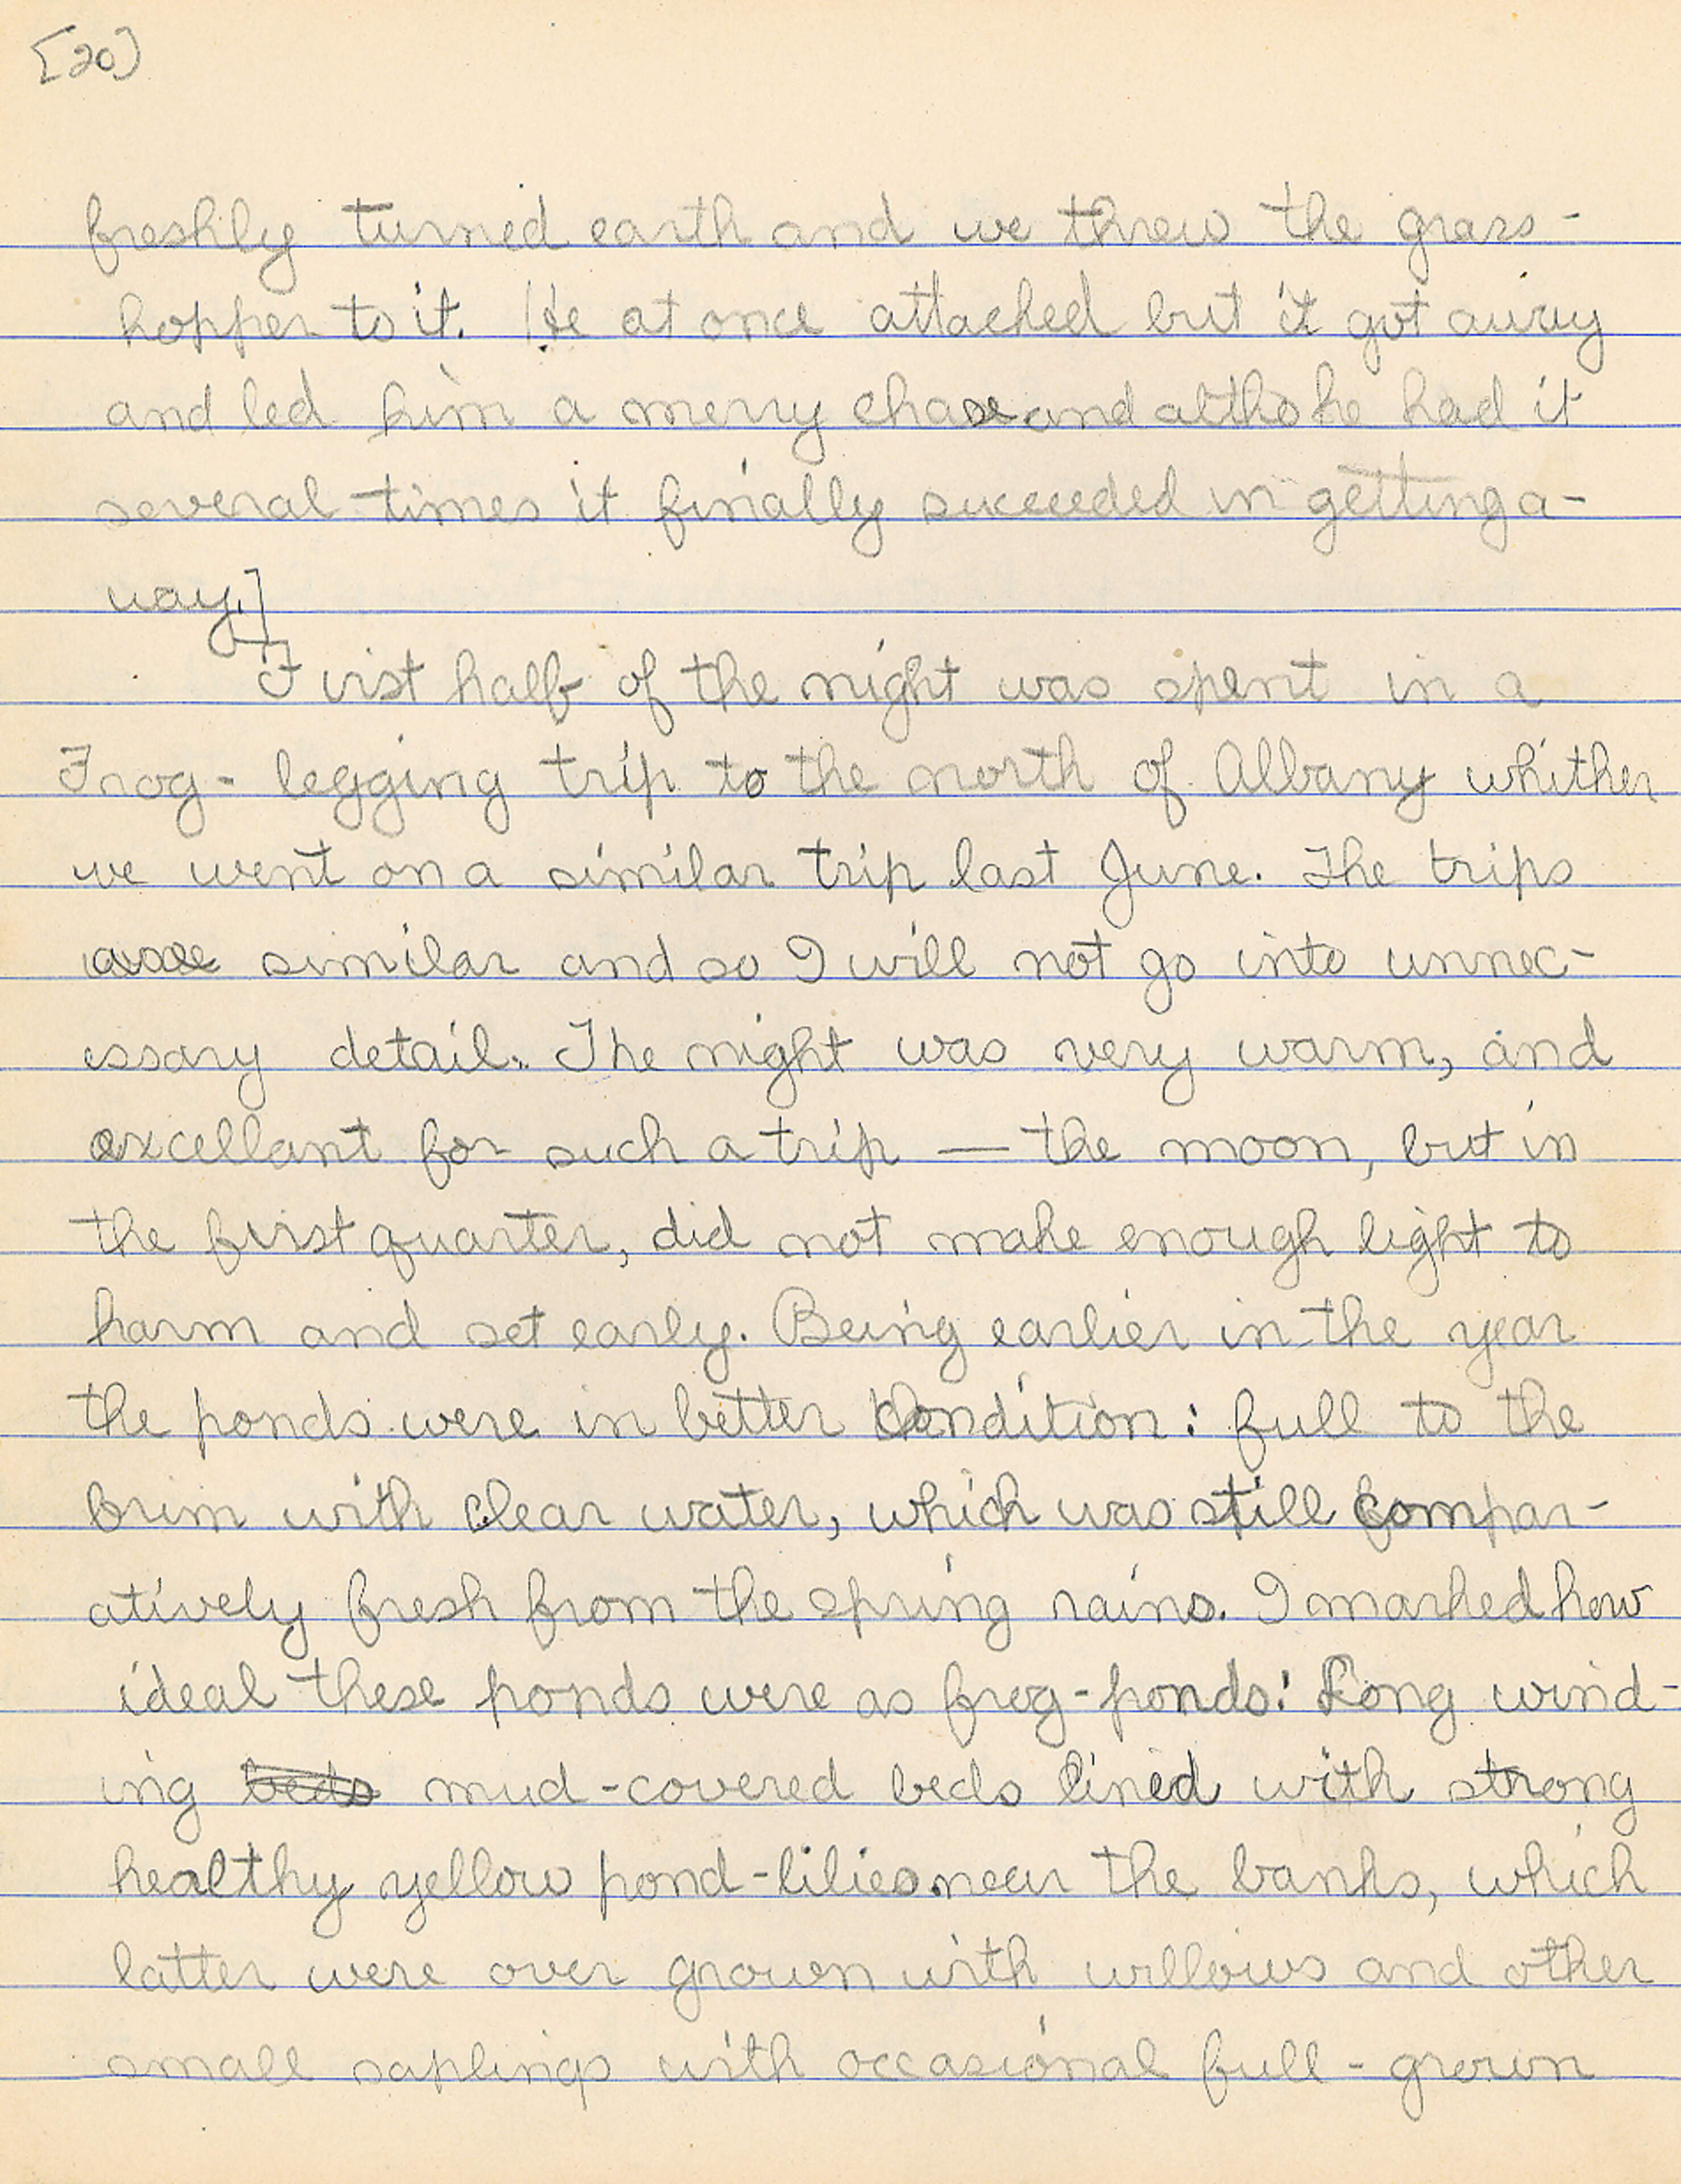 [20]
freshly turned earth and we threw the grass-
hopper to it. He at once attacked but it got away
and led him a merry chase and altho he had it
several times it finally succeeded in getting a-
way.]
First half of the night was spent in a
Frog-legging trip to the north of Albany whither
we went on a similar trip last June. The trips
similar and so I will not go into unnec-
essary detail. The night was very warm, and
excellant for such a trip — the moon, but in
the first quarter, did not make enough light to
harm and set early. Being earlier in the year
the ponds were in better condition: full to the
brim with clear water, which was still compar-
atively fresh from the spring rains. I marked how
ideal these ponds were as frog-ponds: Long wind-
ing beds mud-covered beds lined with strong
healthy yellow pond-lilies near the banks, which
latter were over grown with willows and other
small saplings with occasional full-grown